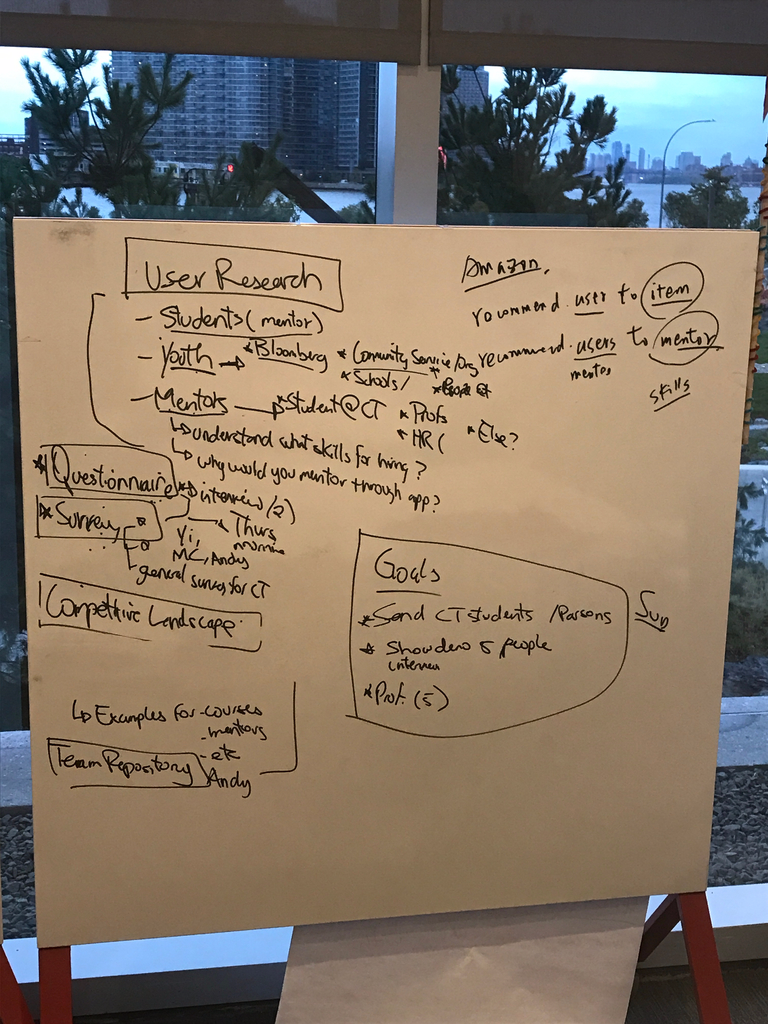 User Research
- Students (mentor)
- Youth → *Bloomberg * Community Service/Org
* Schools/ * People @
- Mentors → *Student@CT * Profs
* HR ( * Else?
↳ understand what skills for hiring?
↳ why would you mentor through app?
* Questionnaire → interview (2)
→ Thurs
Yi,
MC, Andy
* Survey
general survey for CT
Competitive Landscape
↳ Examples for - courses
- mentors
- etc
Team Repository Andy
Amazon.
recommend user to item
recommend users to mentor
mentor
skills
Goals
* Send CT students / Parsons
* Show demo 5 people
interview
* Prof. (5)
Sun